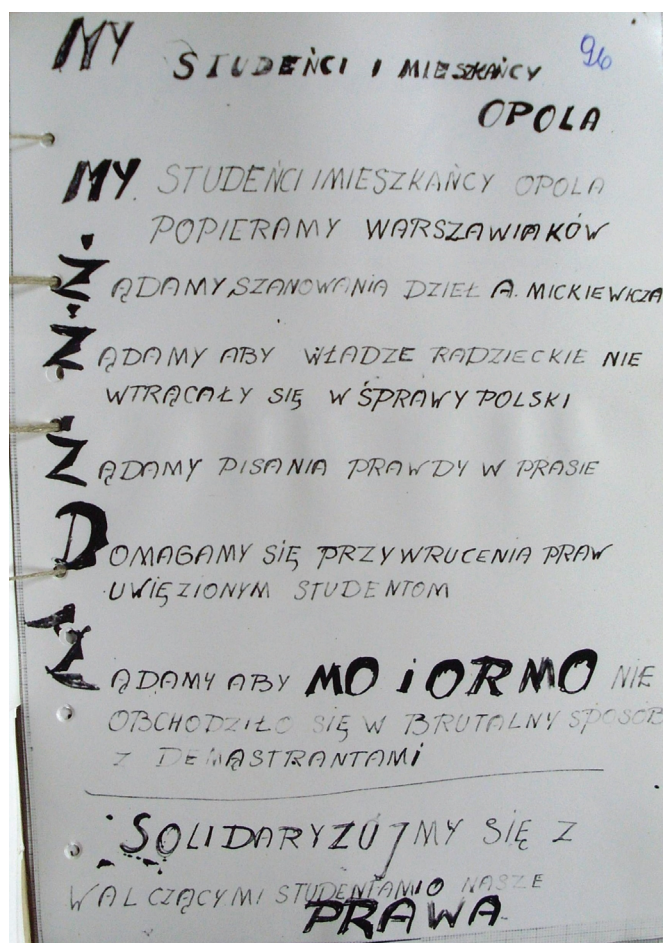 MY STUDEŃCI I MIESZKAŃCY
96
OPOLA
MY STUDEŃCI I MIESZKAŃCY OPOLA
POPIERAMY WARSZAWIAKÓW
ŻĄDAMY SZANOWANIA DZIEŁ A. MICKIEWICZA
ŻĄDAMY ABY WŁADZE RADZIECKIE NIE
WTRĄCAŁY SIĘ W SPRAWY POLSKI
ŻĄDAMY PISANIA PRAWDY W PRASIE
DOMAGAMY SIĘ PRZYWRUCENIA PRAW
UWIĘZIONYM STUDENTOM
ŻĄDAMY ABY MO i ORMO NIE
OBCHODZIŁO SIĘ W BRUTALNY SPOSÓB
Z DEMĄSTRANTAMI
SOLIDARYZUJMY SIĘ Z
WALCZĄCYMI STUDENTAMI O NASZE
PRAWA